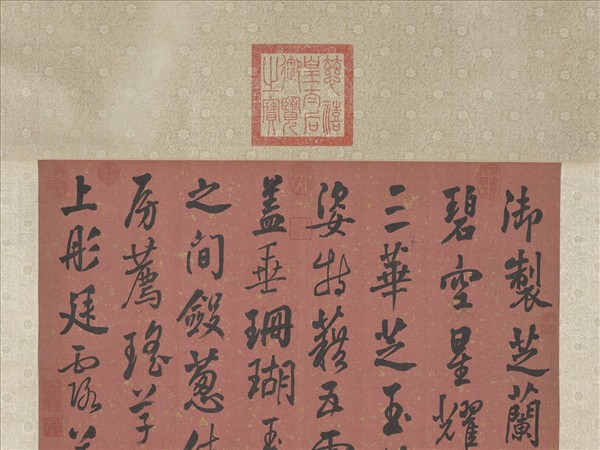 慈禧
皇太后
御覽
之寶
御製芝蘭
碧空星耀
三華芝玉
姿特藉五雲
蓋垂珊瑚玉
之間毅蔥
房薦瑤草
上彤廷